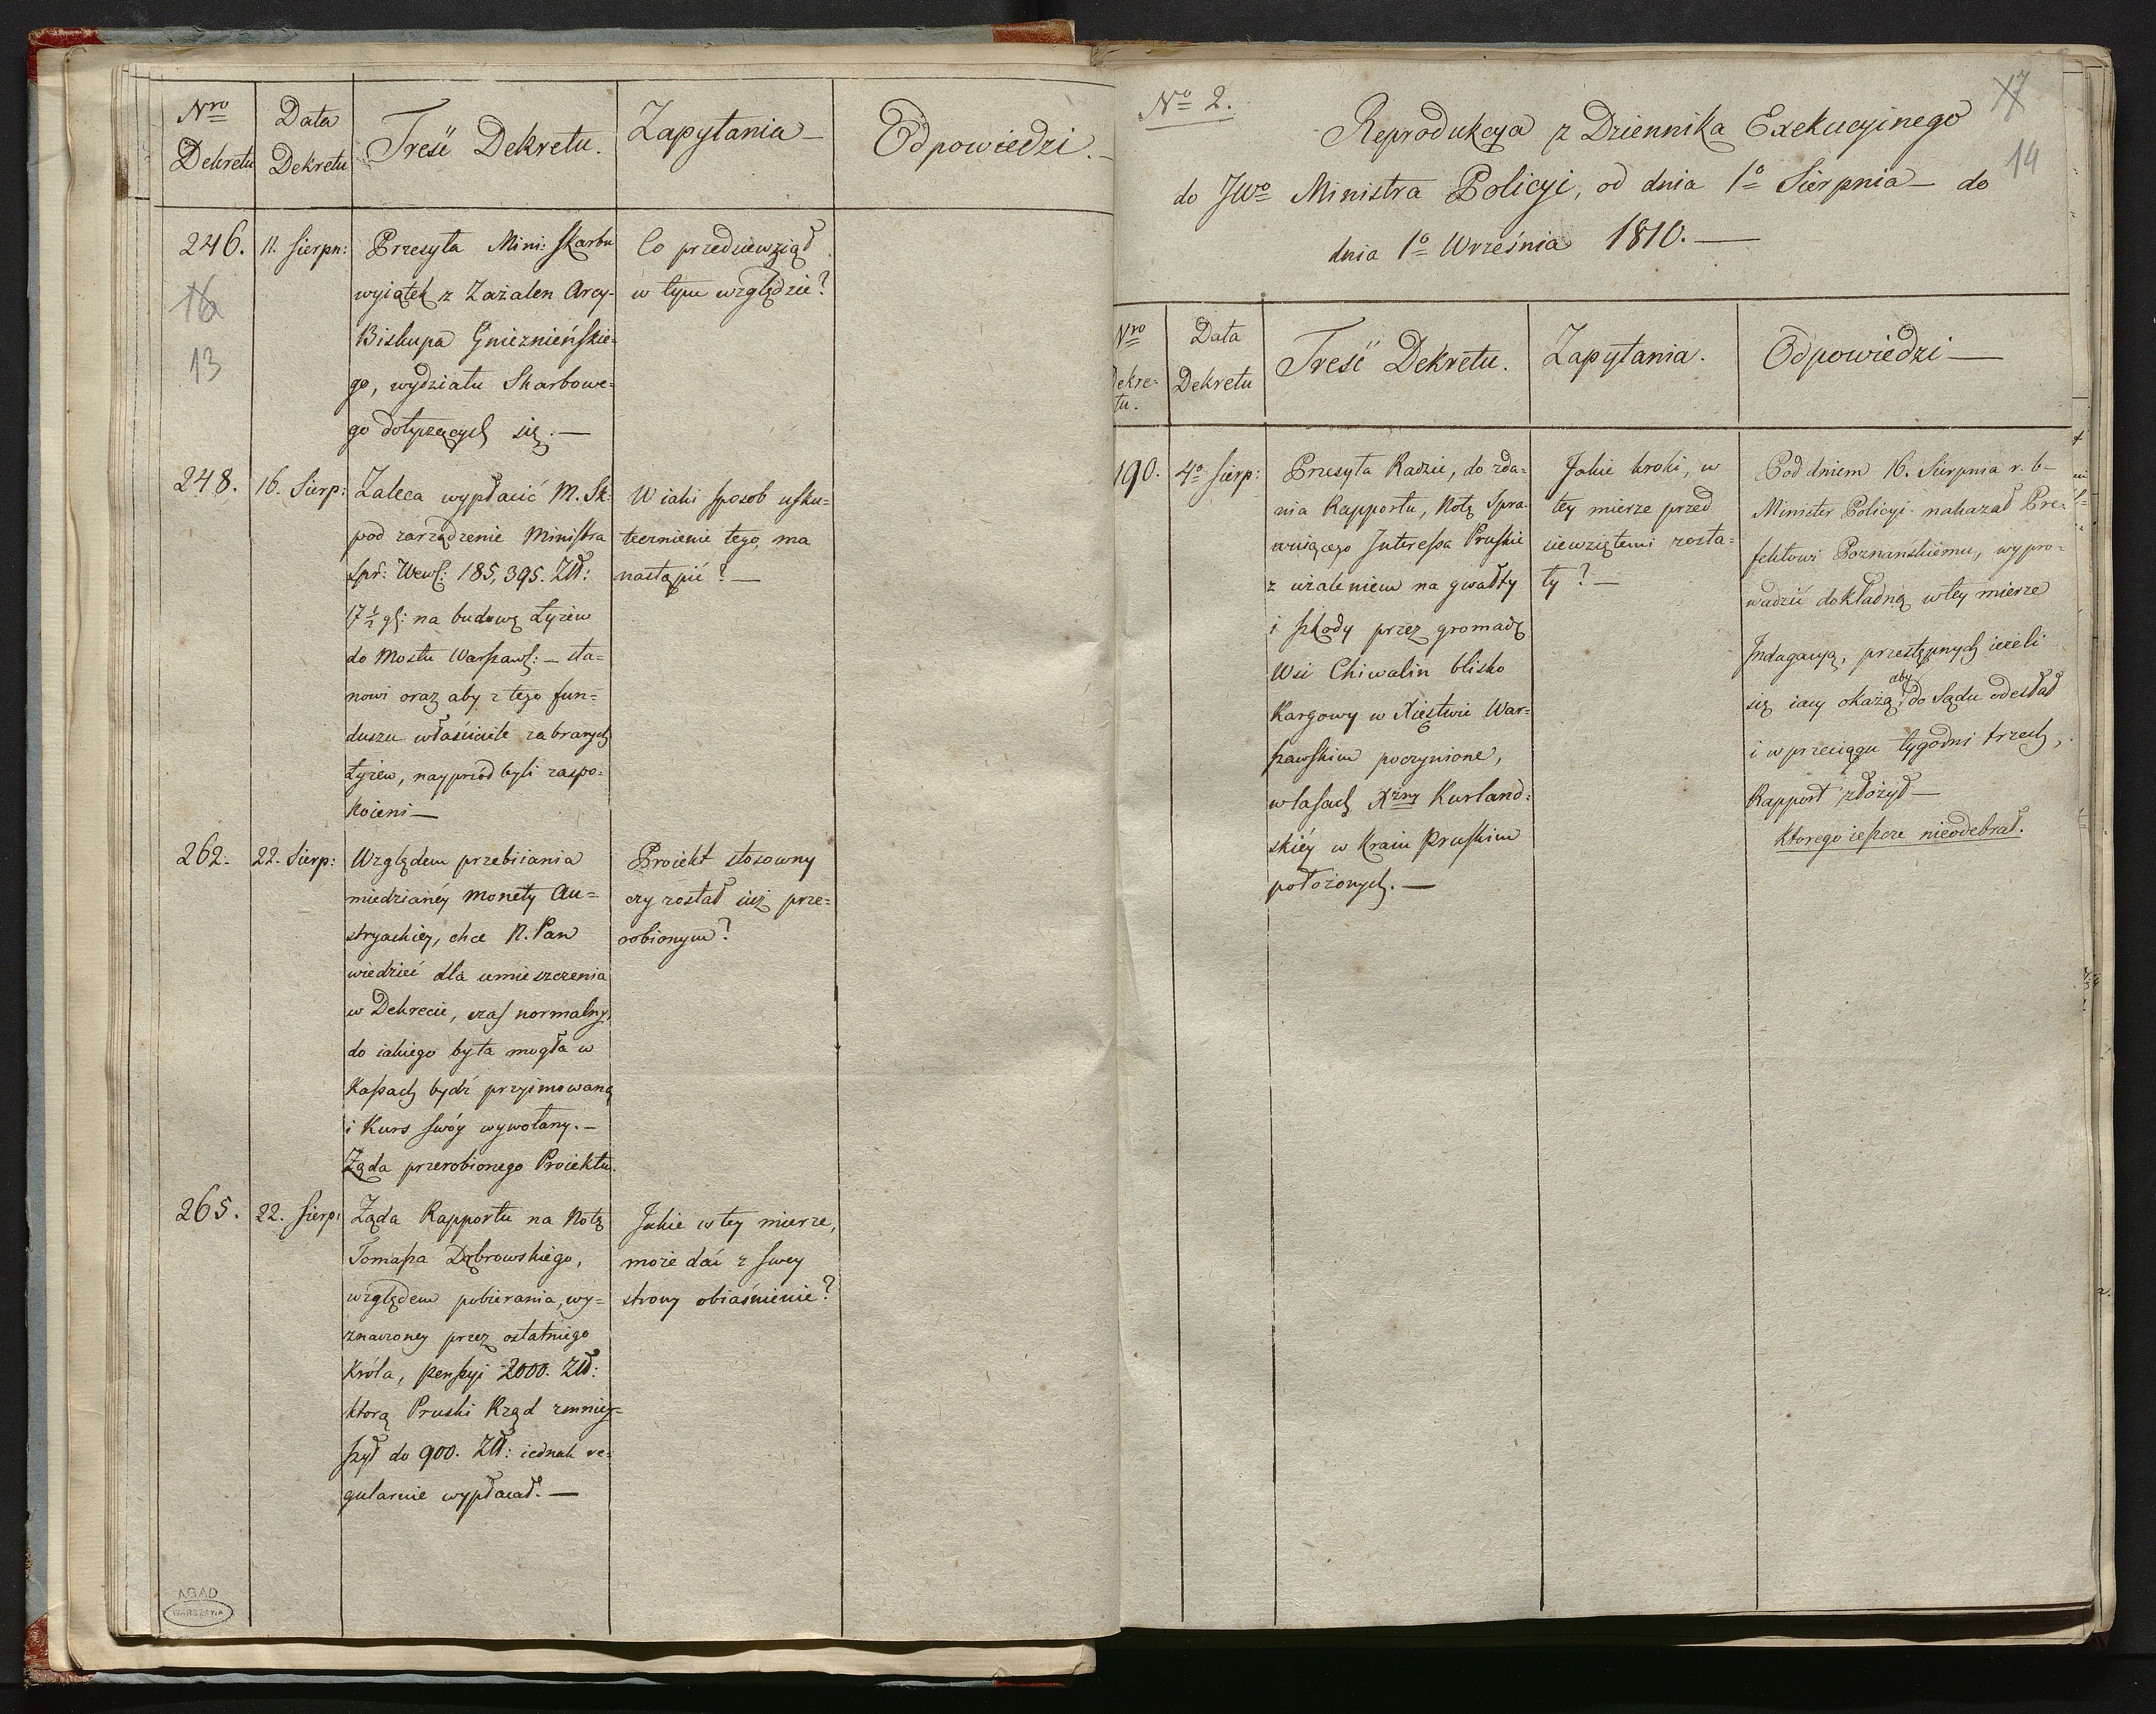 Nro
Dekretu
Data
Dekretu
Treść Dekretu.
Zapytania
Odpowiedzi.
246.
11. Sierpn:
Przesyła Mini: Skarbu
wyiątek z Zażalen Arcy-
Biskupa Gnieznieńskie-
go, wydziału Skarbowe-
go dotyczących się.—
Co przedsiewziął
w tym względzie?
16
13
248.
16. Sierp:
Zaleca wypłacić M. Sk:
pod zarządzenie Ministra
Spr: Wew: 185,395. Złł:
17 ½ gl: na budowę Łyżew
do Mostu Warszaws: — sta=
nowi oraz aby z tego fun=
duszu właściciele zabranych
Łyżew, nayprzód byli zaspo=
koieni—
W iaki sposob usku=
tecznienie tego, ma
nastąpić?—
262.
22. Sierp:
Względem przebiiania
miedzianéy monety Au=
stryackiey, chce N. Pan
wiedzieć dla umieszczenia
w Dekrecie, czas normalny,
do iakiego była mogła w
Kassach bydź przyimowaną
i Kurs swóy wywołany.—
Żąda przerobionego Proiektu.
Proiekt stosowny
czy został iuż prze=
robionym?
265.
22. Sierp:
Żąda Rapportu na Notę
Tomasza Dąbrowskiego,
względem pobierania, wy=
znaczoney przez ostatniego
Króla, pensyi 2000. Złł:
którą Pruski Rząd zmniey=
szył do 900. Złł: iednak re=
gularnie wypłacał.—
Jakie w tey mierze,
może dać z swey
strony obiaśnienie?
AGAD
WARSZAWA
No 2.
17
14
Reprodukcya z Dziennika Exekucyinego
do JWo Ministra Policyi, od dnia 1o Sierpnia — do
dnia 1o Września 1810.—
Nro
Dekre=
tu.
Data
Dekretu
Treść Dekretu.
Zapytania.
Odpowiedzi—
190.
4o Sierp:
Przesyła Radzie, do zda=
nia Rapportu, Notę Spra=
wuiącego Interessa Pruskie
z użaleniem na gwałty
i szkody przez gromadę
Wsi Chiwalin blisko
Kargowy w Xięstwie War=
szawskim poczynione,
w lasach Xżny Kurland=
skiéy w Kraiu Pruskim
położonych.—
Jakie kroki, w
tey mierze przed
siewziętemi zosta=
ły?—
Pod dniem 16. Sierpnia r. b—
Minister Policyi nakazał Pre=
fektowi Poznańskiemu, wypro=
wadzić dokładną w tey mierze
Indagacyą, przestępnych ieżeli
się iacy okażą, aby do Sądu odesłał
i w przeciągu tygodni trzech,
Rapport złożył—
ktorego ieszcze nieodebrał.